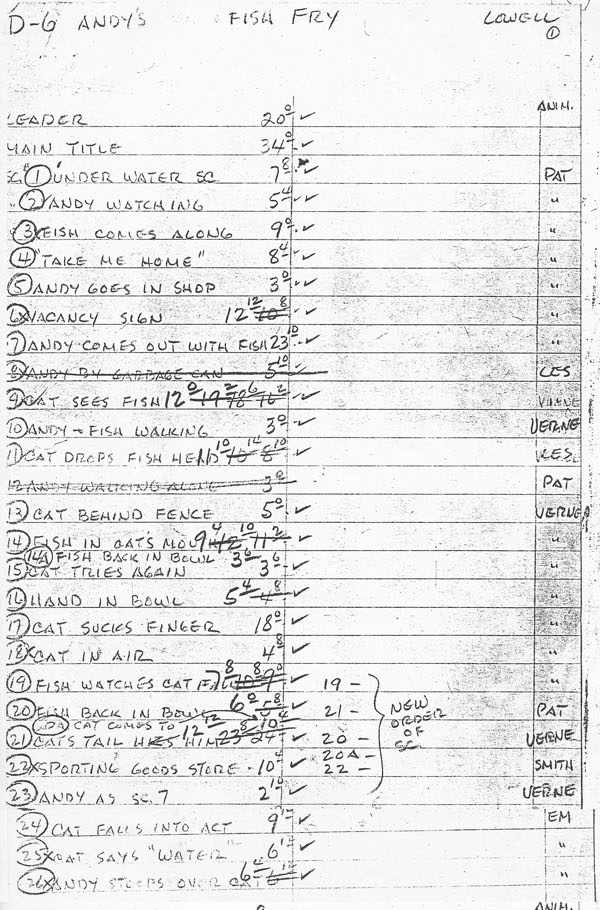 D-6 ANDY'S FISH FRY LOWELL ①
ANIM.
LEADER 20⁰ ✓
MAIN TITLE 34⁰ ✓
SC. ① UNDER WATER SC 7⁸ ✓ PAT
" ② ANDY WATCHING 5⁴ ✓ "
③ FISH COMES ALONG 9⁰ ✓ "
④ "TAKE ME HOME" 8⁴ ✓ "
⑤ ANDY GOES IN SHOP 3⁰ ✓ "
⑥ VACANCY SIGN 12¹² 10⁸ ✓ "
⑦ ANDY COMES OUT WITH FISH 23¹⁰ ✓ "
8 ANDY BY GARBAGE CAN 5¹⁰ LES
⑨ CAT SEES FISH 12⁰ 19² 18⁶ 16² ✓ VERNE
⑩ ANDY - FISH WALKING 3⁰ ✓ VERNE
⑪ CAT DROPS FISH HEAD 10¹⁴ 8¹⁰ ✓ LES.
12 ANDY WALKING ALONG 3⁰ PAT
⑬ CAT BEHIND FENCE 5⁰ ✓ VERNE
⑭ FISH IN CATS MOU 9⁴ 12¹⁰ 11² ✓ "
14A FISH BACK IN BOWL 3⁶
⑮ CAT TRIES AGAIN 3⁶ ✓ "
⑯ HAND IN BOWL 5⁴ 4⁸ ✓ "
⑰ CAT SUCKS FINGER 18⁰ ✓ "
⑱ CAT IN AIR 4⁸ ✓ "
⑲ FISH WATCHES CAT 10⁸ 9⁰ ✓ 19 - "
⑳ FISH BACK IN BOWL 6⁰ 5⁸ ✓ 21 - NEW ORDER OF SC. PAT
20A CAT COMES TO 12¹²
㉑ CATS TAIL HITS HIM 23⁸ 24 ✓ 20 - VERNE
20A -
㉒ SPORTING GOODS STORE - 10⁴ ✓ 22 - SMITH
㉓ ANDY AS SC. 7 2¹⁰ ✓ VERNE
㉔ CAT FALLS INTO ACT 9 ✓ EM
㉕ CAT SAYS "WATER" 6 ✓ "
㉖ ANDY STOOPS OVER CAT 6 ✓ "
ANIM.